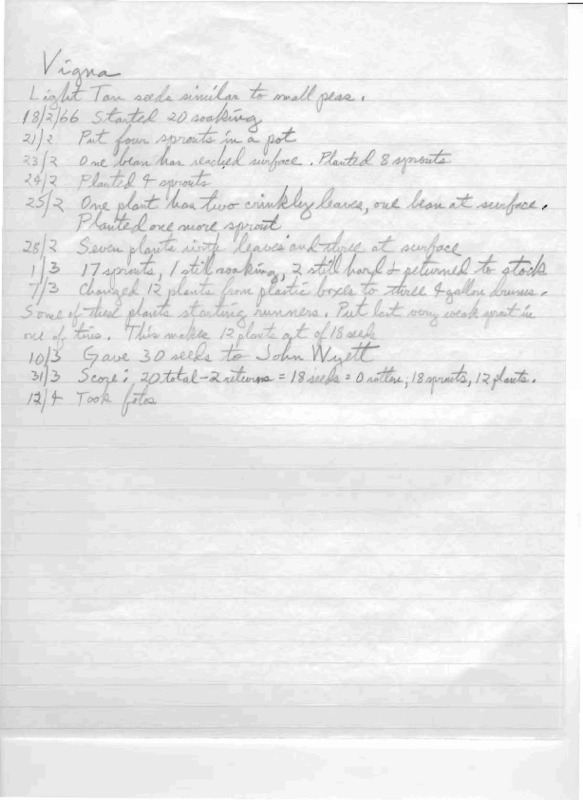 Vigna
Light Tan seeds similar to small peas.
18/2/66 Started 20 soaking
21/2 Put four sprouts in a pot
23/2 One bean has reached surface. Planted 8 sprouts
24/2 Planted 4 sprouts
25/2 One plant has two crinkley leaves, one bean at surface.
Planted one more sprout
28/2 Seven plants with leaves and three at surface
1/3 17 sprouts, 1 still soaking, 2 still hard & returned to stock
7/3 Changed 12 plants from plastic boxes to three 4 gallon drums.
Some of these plants starting runners. Put last very weak sprout in
one of tins. This makes 12 plants out of 18 seeds
10/3 Gave 30 seeds to John Wyett
31/3 Score: 20 total - 2 returns = 18 seeds = 0 rotten, 18 sprouts, 12 plants.
12/4 Took fotos